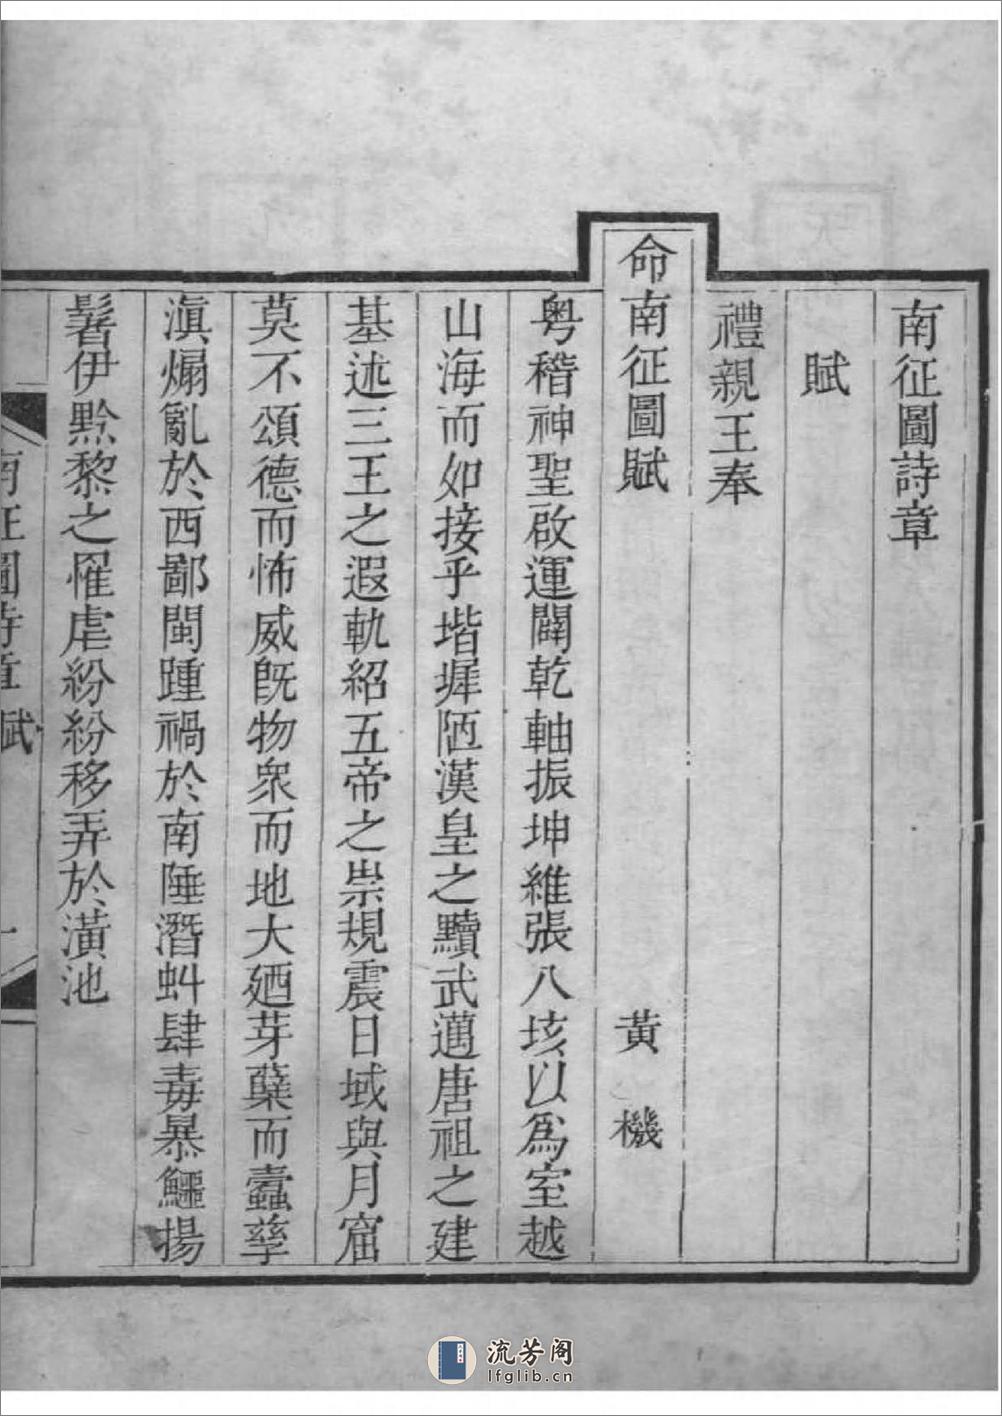 南征圖詩章
賦
禮親王奉
命南征圖賦　黃　機
粤稽神聖啟運闢乾軸振坤維張八垓以為室越
山海而如接乎堦墀陋漢皇之黷武邁唐祖之建
基述三王之遐軌紹五帝之崇規震日域與月窟
莫不頌德而怖威旣物衆而地大廼芽蘖而蠹孳
滇煽亂於西鄙閩踵禍於南陲潛虯肆毒暴鱷揚
鬐伊黔黎之罹虐紛紛移弄於潢池
南征圖詩章　賦　一
流芳阁
lfglib.cn